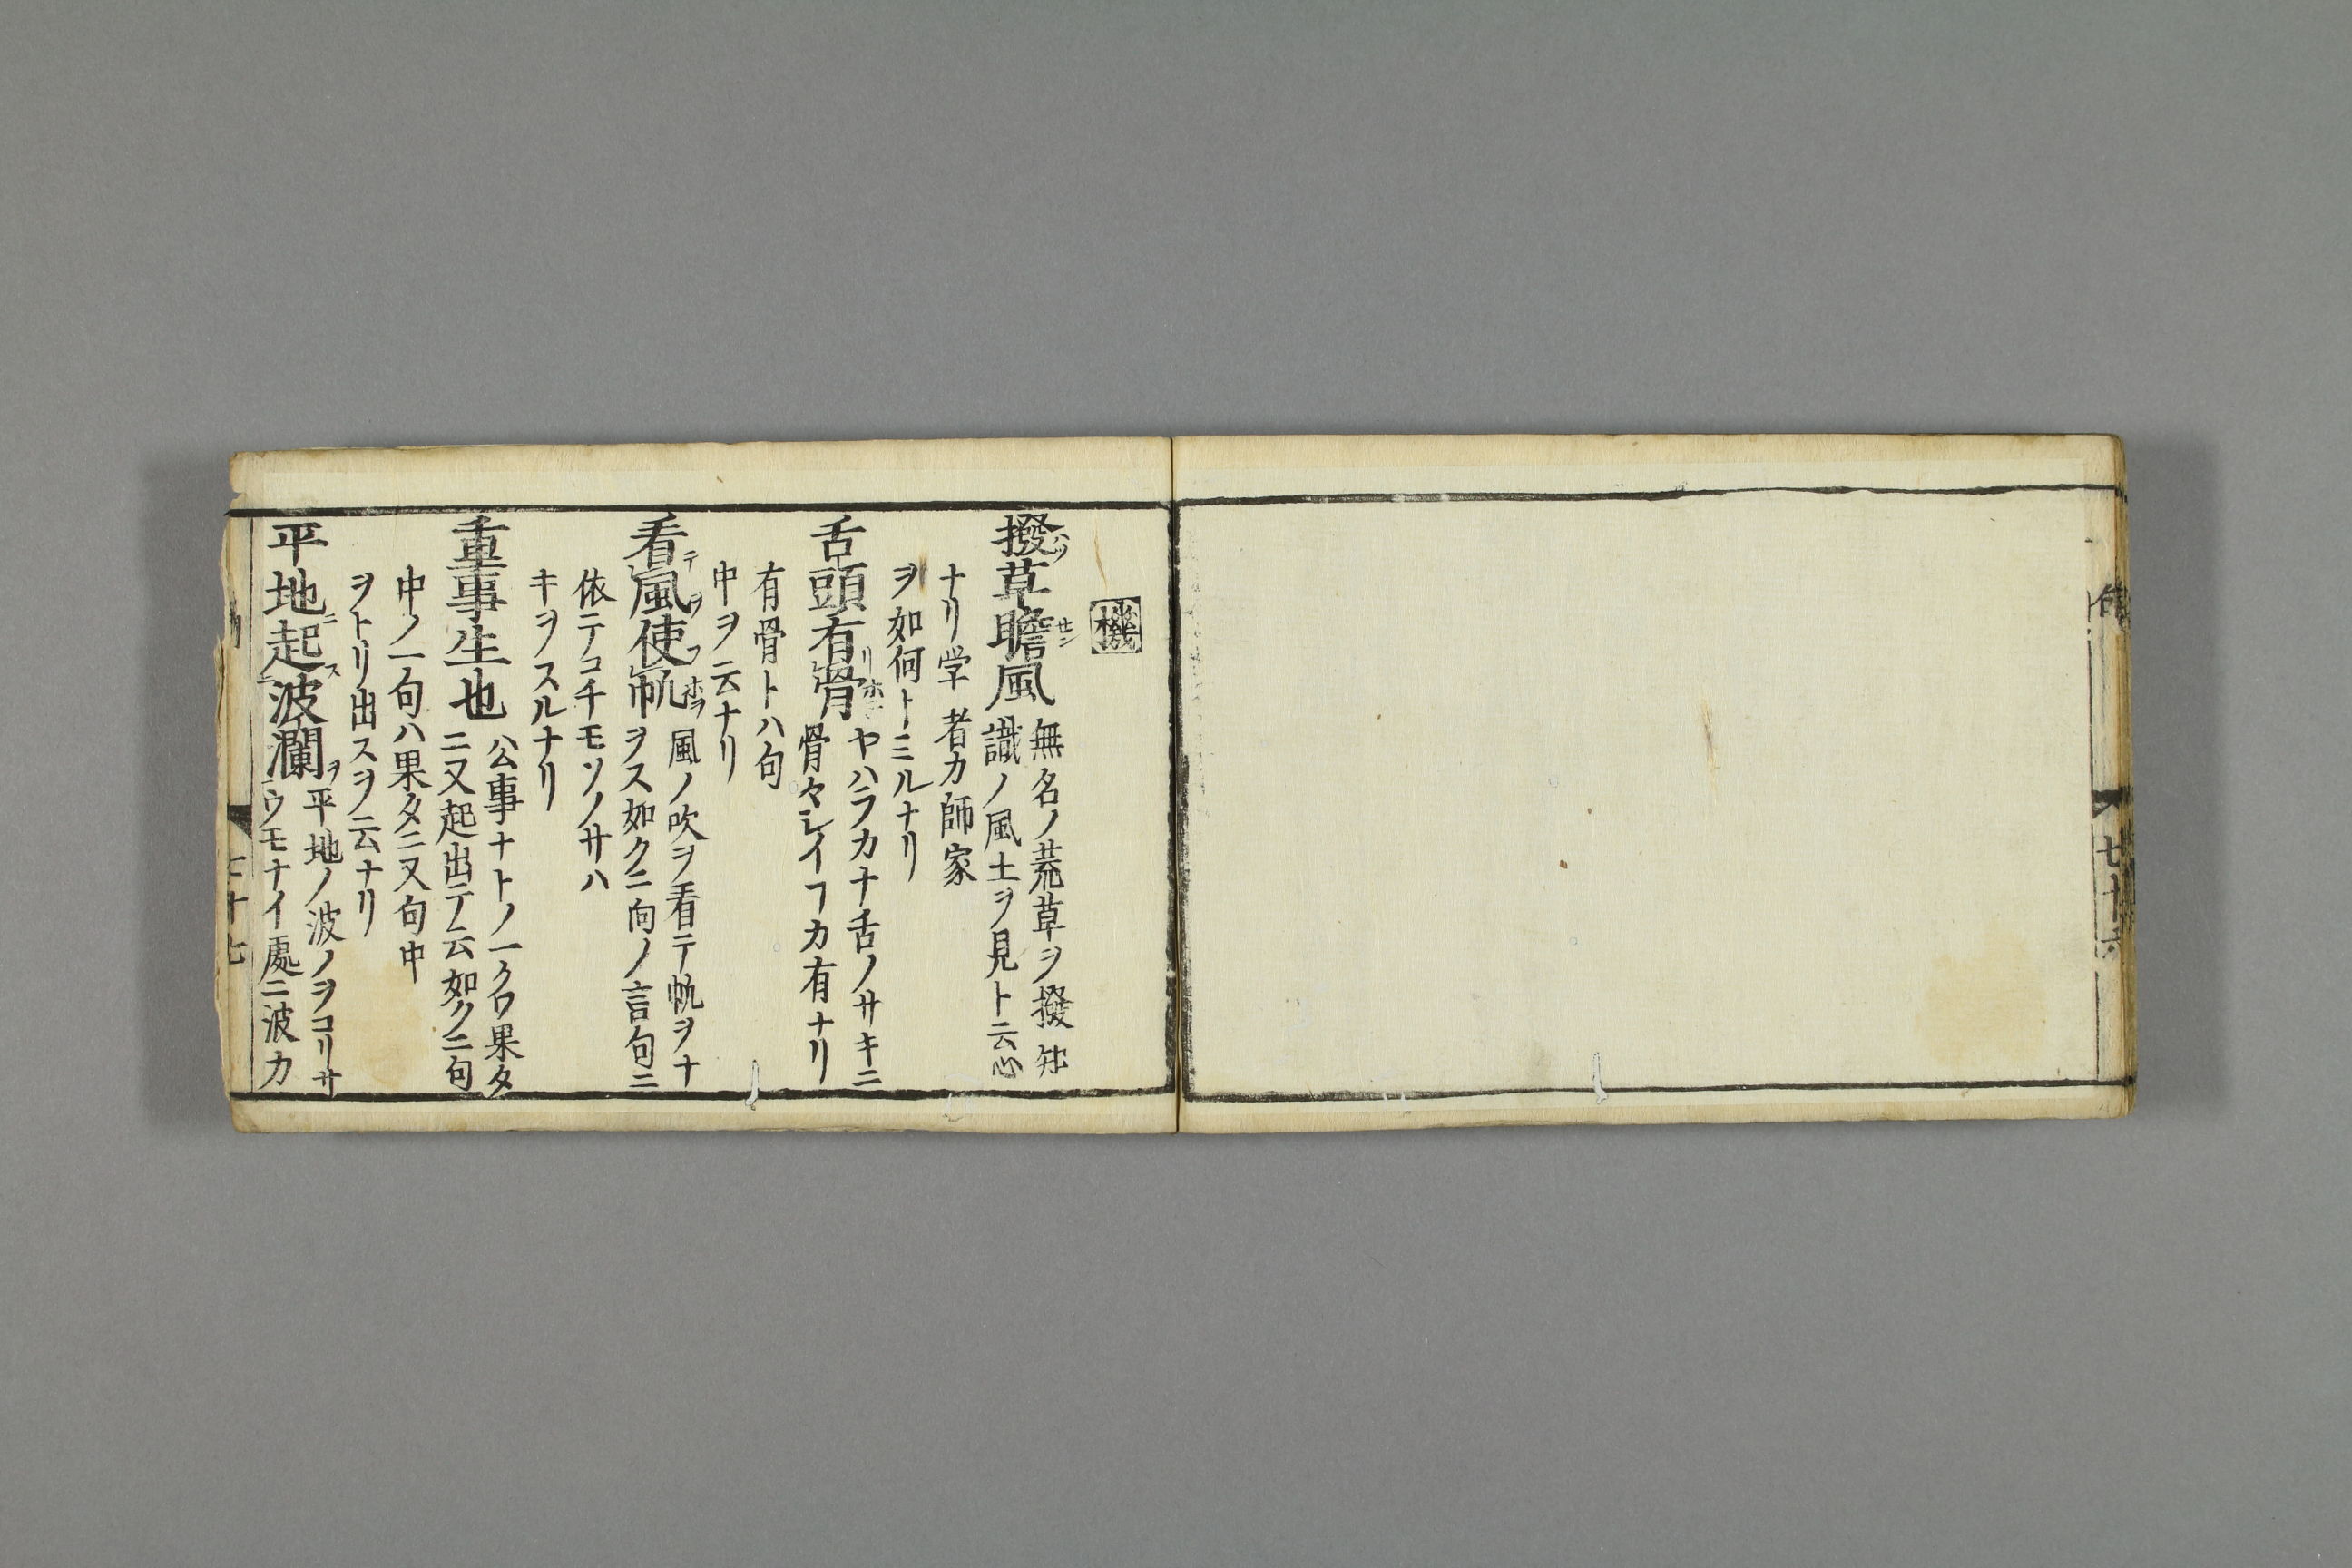 七十六
機
撥草瞻風 無名ノ荒草ヲ撥知
識ノ風土ヲ見ト云心
ナリ学者カ師家
ヲ如何トミルナリ
舌頭有骨 ヤハラカナ舌ノサキニ
骨々シイフカ有ナリ
有骨トハ句
中ヲ云ナリ
看風使帆 風ノ吹ヲ看テ帆ヲナ
ヲス如クニ向ノ言句ニ
依テコチモソノサハ
キヲスルナリ
重事生也 公事ナトノ一クワ果タ
ニ又起出テ云如クニ句
中ノ一句ハ果タニ又句中
ヲトリ出スヲ云ナリ
平地起波瀾 平地ノ波ノヲコリサ
ウモナイ處ニ波カ
七十七